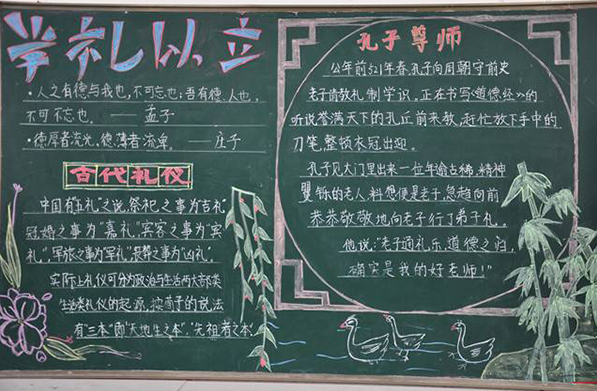 学礼以立
·人之有德与我也,不可忘也;吾有德人也,
不可不忘也。——孟子
·德厚者流光,德薄者流卑。——庄子
古代礼仪
中国有"五礼"之说,祭祀之事为吉礼
冠婚之事为"嘉礼"宾客之事为"宾
礼",军旅之事为"军礼"丧葬之事为"凶礼"。
实际上礼仪可分为政治与生活两大部类
生活类礼仪的起源,按荀子的说法
有"三本"即"天地生之本","先祖者之本"
孔子尊师
公年前521年春,孔子向周朝守前史
老子请教礼制学识。正在书写《道德经》的
听说誉满天下的孔丘前来教,赶忙放下手中的
刀笔,整顿衣冠出迎。
孔子见大门里出来一位年逾古稀、精神
矍铄的老人,料想便是老子,急趋向前
恭恭敬敬地向老子行了弟子礼。
他说:"老子通礼乐,道德之归,
确实是我的好老师!"